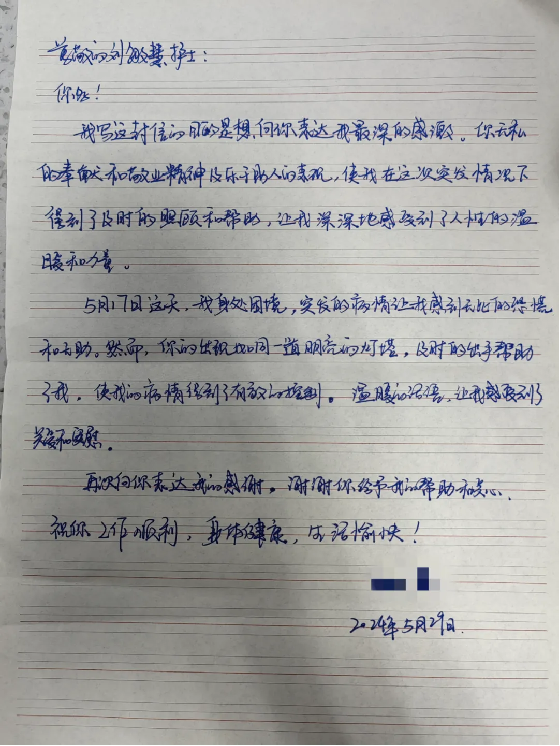 尊敬的刘敏慧护士：
你好！
我写这封信的目的是想向你表达我最深的感激。你无私
的奉献和敬业精神及乐于助人的表现，使我在这次突发情况下
得到了及时的照顾和帮助，让我深深地感受到了人性的温
暖和力量。
5月17日这天，我身处困境，突发的病情让我感到无比的恐慌
和无助。然而，你的出现如同一道明亮的灯塔，及时的出手帮助
了我，使我的病情得到了有效的控制。温暖的话语，让我感受到了
关爱和安慰。
再次向你表达我的感谢。谢谢你给予我的帮助和关心．
祝你工作顺利，身体健康，生活愉快！
2024年5月29日．